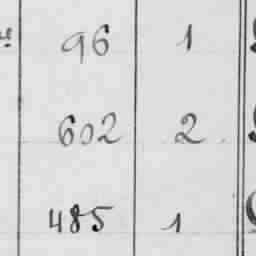 96 1
602 2
485 1